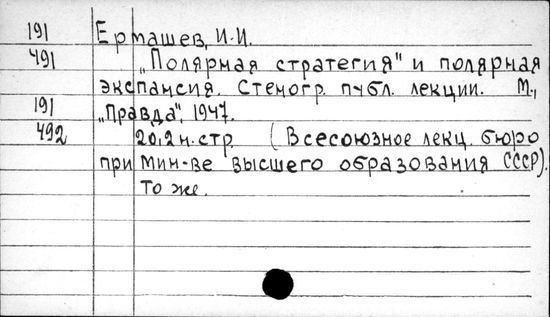 191 Ермашев, И.И.
491 „Полярная стратегия" и полярная
экспансия. Стеногр. публ. лекции. М.,
191 „Правда", 1947.
492 20,2 н. стр. (Всесоюзное лекц. бюро
при Мин-ве высшего образования СССР).
То же.